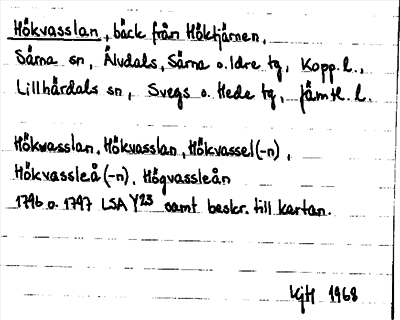 Hökvasslan, bäck från Höktjärnen,
Särna sn, Älvdals, Särna o. Idre tg, Kopp. l.,
Lillhärdals sn, Svegs o. Hede tg, Jämtl. l.
Hökvasslan, Hökvasslan, Hökvassel(-n),
Hökvassleå(-n), Högvassleån
1796 o. 1797 LSA Y23 samt beskr. till kartan.
KjH 1968